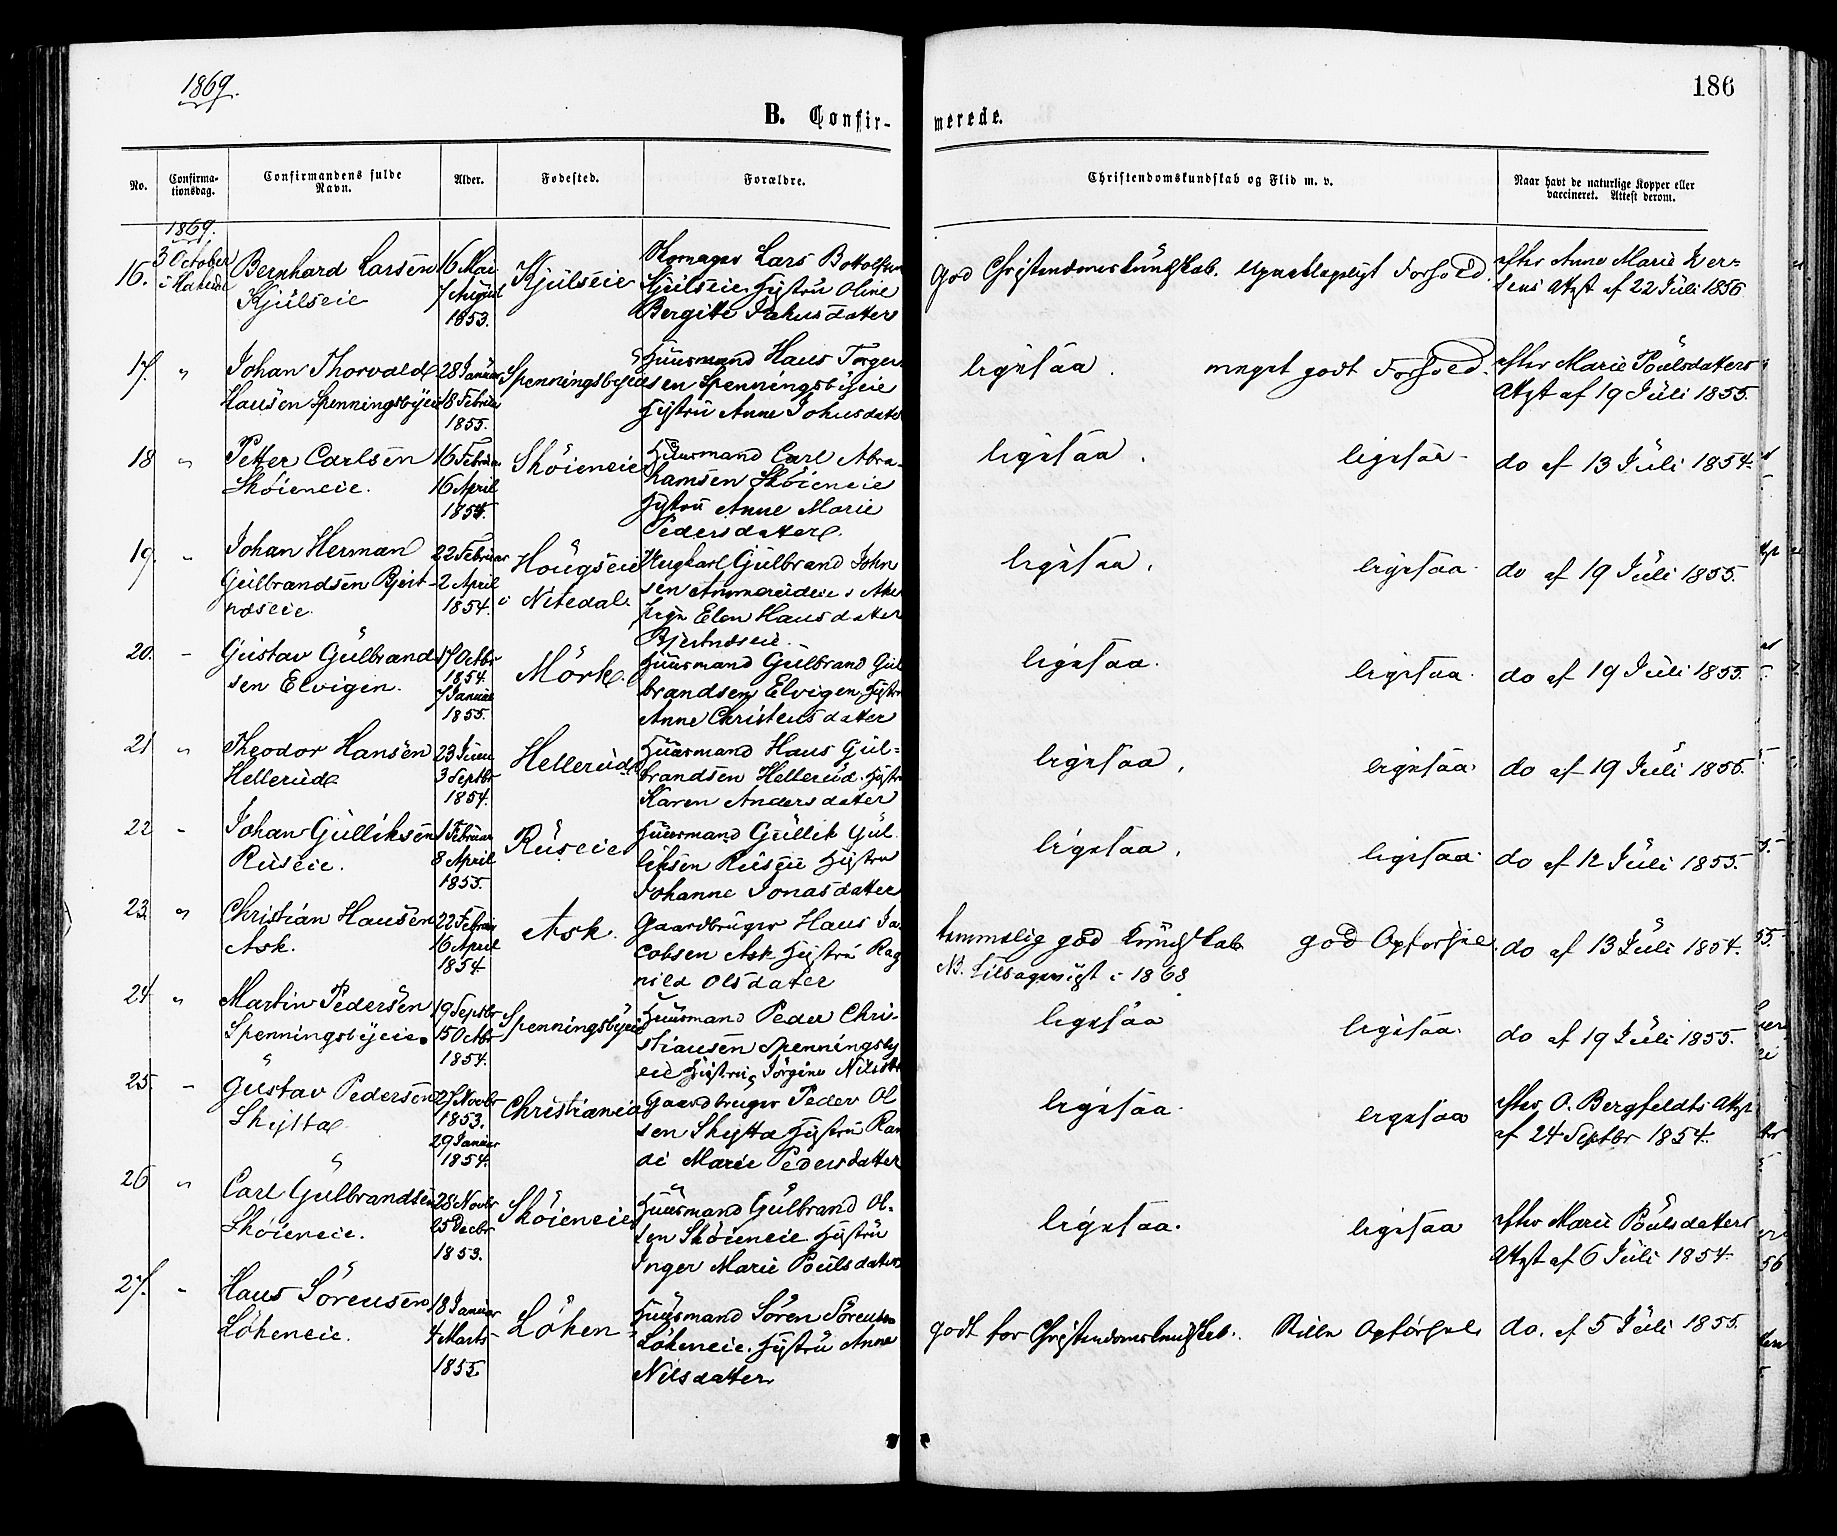 1869.
186
B. Confir-
merede.
No.
Confirma-
tionsdag.
Confirmandens fulde
Navn.
Alder.
Fødested.
Forældre.
Christendomskundskab og Flid m. v.
Naar havt de naturlige Kopper eller
vaccineret. Attest derom.
1869.
16.
3 October
i
Bernhard Larsen
Kjülseie
16 Mai
7 August
1853.
Kjülseie
Lars Bottolfsen
Kjülseie. Hustrü Oline
Bergitte datter
god Christendomskündskab.
Forhold.
efter Anne Marie Iver-
sens Attest af 22 Jüli 1856
17.
"
Johan Thorvald
Hansen Spenningsbyeie
28 Januar
18 Februar
1855.
Spenningsbyeie
Hüusmand Hans Torger
sen Spenningsbyeie
Hüstrü Anne Johnsdatter
ligesaa.
meget godt Forhold.
efter Marie Poülsdatters
Attest af 19 Jüli 1855.
18
"
Petter Carlsen
Skøieneie.
16 Februar
16 April
1854.
Skøieneie
Hüusmand Carl Abra-
hamsen Skøieneie
Hüstrü Anne Marie
Pedersdatter.
ligesaa.
ligesaa.
do af 13 Jüli 1854.
19.
"
Johan Herman
Gülbrandsen Bjert-
næseie.
22 Februar
2 April
1854.
Hougseie
i Nitedal.
Ungkarl Gülbrand John
sen
Pige Elen Hansdatter
Bjertnæseie.
ligesaa.
ligesaa.
do af 19 Jüli 1855.
20.
"
Güstav Gülbrand
sen Elvigen.
17 Octbr
1854.
7 Januar
1855.
Mørk
Hüusmand Gülbrand Gül
brandsen Elvigen, Hüstrü
Anne Christensdatter
ligesaa.
ligesaa.
do af 19 Jüli 1855.
21
"
Theodor Hansen
Hellerüd
23 Juni
3 Septbr
1854.
Hellerüd
Hüusmand Hans Gül-
brandsen Hellerüd. Hüstrü
Karen Andersdatter
ligesaa.
ligesaa.
do af 19 Jüli 1855.
22
"
Johan Gülliksen
Rüseie.
1 Februar
8 April
1855.
Rüseie
Hüusmand Güllik Gül
liksen Rüseie Hüstrü
Johanne Jonasdatter
ligesaa.
ligesaa.
do af 12 Jüli 1855.
23.
"
Christian Hansen
Ask.
22 Februar
16 April
1854
Ask.
Gaardbruger Hans Ja
cobsen Ask Hüstrü Rag
nild Olsdatter
temmelig god Kündskab
NB. i 1868
god Opførsel.
do af 13 Jüli 1854.
24
"
Martin Pedersen
Spenningsbyeie.
19 Septbr
15 Octbr
1854.
Spenningsbyeie
Hüusmand Peder Chri-
stiansen Spenningsby
eie Hüstrü, Jørgine Nilsdtr
ligesaa
ligesaa.
do af 19 Jüli 1855.
25.
"
Güstav Pedersen
Skytta
27 Novbr
1853.
29 Januar
1854.
Christiania
Gaardbruger Peder Ol
sen Skytta Hüstrü Ran
di Marie Pedersdatter
ligesaa.
ligesaa
efter O. Bergfeldts Attest
af 24 Septbr 1854.
26
"
Carl Gülbrandsen
Skøieneie.
28 Novbr
25 Decbr
1853.
Skøieneie
Hüusmand Gülbrand Ol-
sen Skøieneie. Hüstrü
Inger Marie Poülsdatter
ligesaa.
ligesaa
efter Marie Poülsdatters
Attest af 6 Jüli 1854.
27.
"
Hans Sørensen
Løkeneie.
18 Januar
4 Marts
1855
Løken
Hüusmand Søren Sørensen
Løkeneie. Hüstrü Anne
Nilsdatter
godt for Christendomskundskab.
Opførsel.
do. af 5 Jüli 1855.